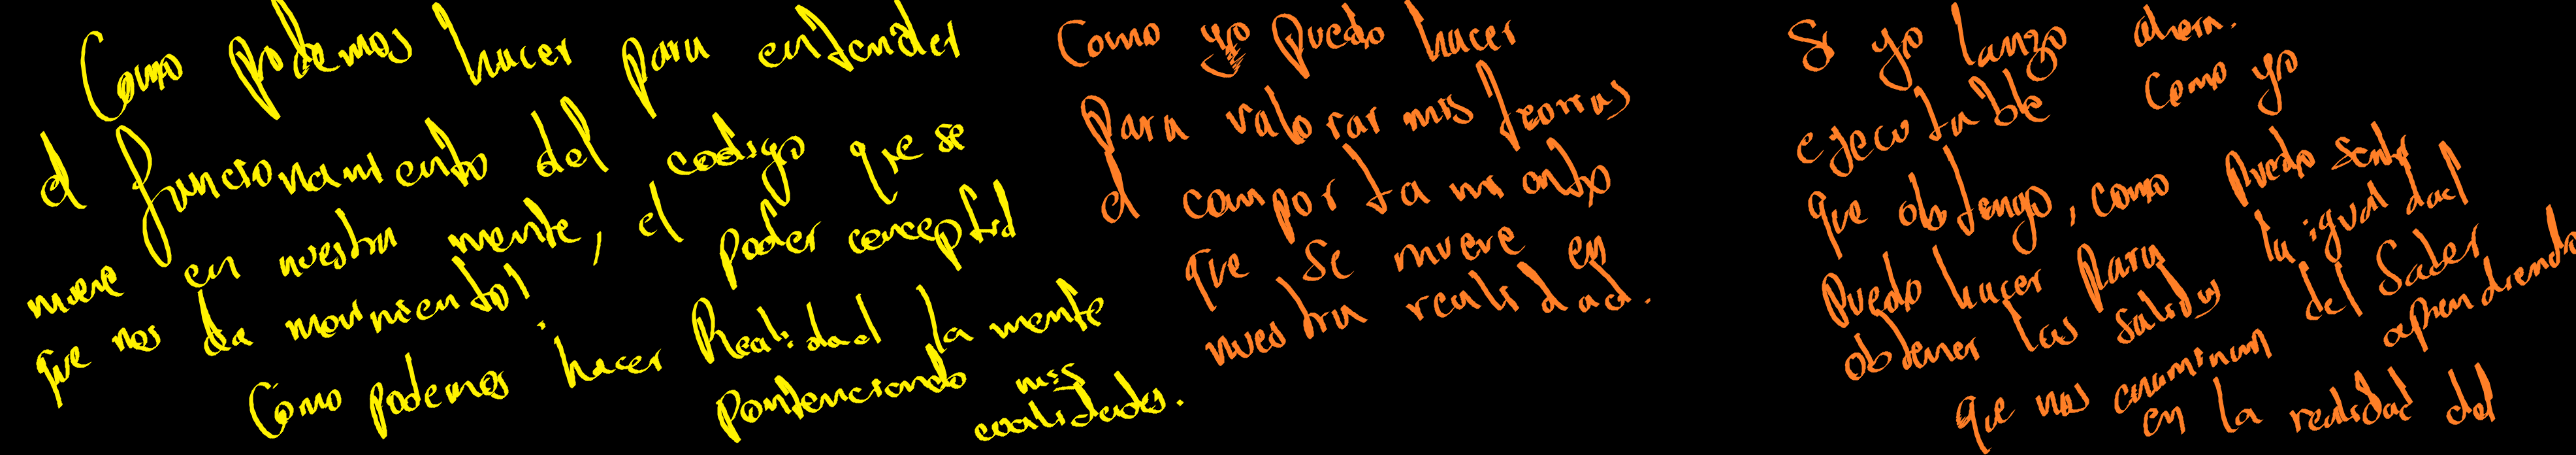 Como podemos hacer para entender
el funcionamiento del codigo que se
mueve en nuestra mente, el poder conceptual
que nos da movimiento!
Como podemos hacer Realidad la mente
pontenciando mis
cualidades.
Como yo puedo hacer
para valorar mis teorias
el comportamiento
que se mueve en
nuestra realidad.
Si yo lanzo ahora.
ejecutable como yo
que obtengo, como puedo sentir
puedo hacer para la igualdad
obtener las salidas del Saber
que nos caminan aprendiendo
en la realidad del